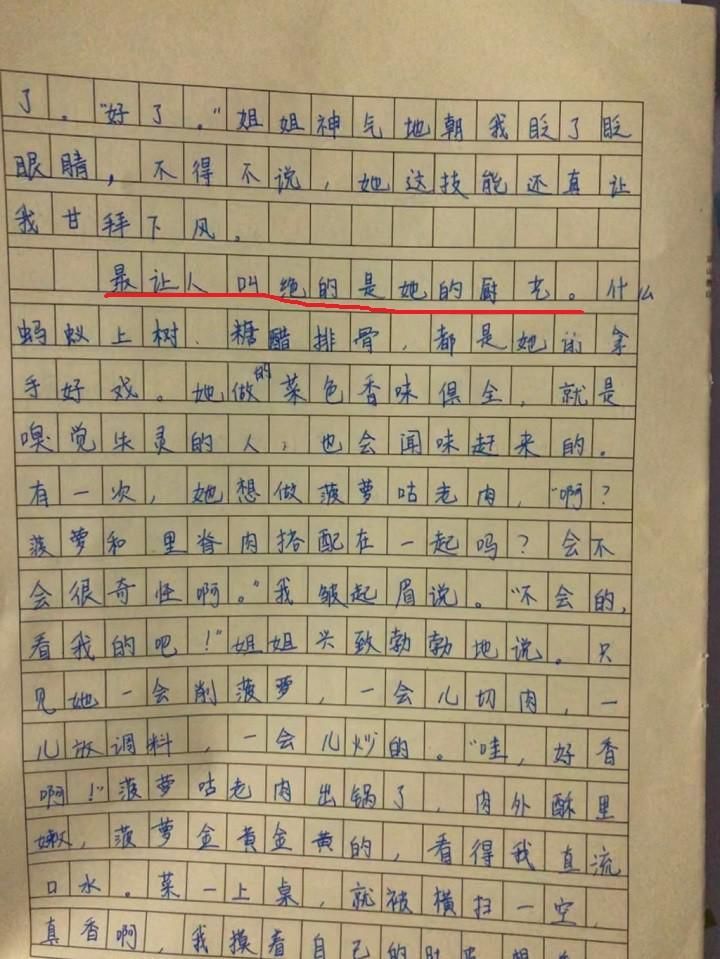 了。“好了。”姐姐神气地朝我眨了眨
眼睛，不得不说，她这技能还真让
我甘拜下风。
最让人叫绝的是她的厨艺。什么
蚂蚁上树、糖醋排骨，都是她的拿
手好戏。她做的菜色香味俱全，就是
嗅觉失灵的人，也会闻味赶来的。
有一次，她想做菠萝咕老肉，“啊？
菠萝和里脊肉搭配在一起吗？会不
会很奇怪啊。”我皱起眉说。“不会的，
看我的吧！”姐姐兴致勃勃地说。只
见她一会削菠萝，一会儿切肉，一
儿放调料，一会儿炒的。“哇，好香
啊！”菠萝咕老肉出锅了，肉外酥里
嫩，菠萝金黄金黄的，看得我直流
口水。菜一上桌，就被横扫一空，
真香啊，我摸着自己的肚皮想